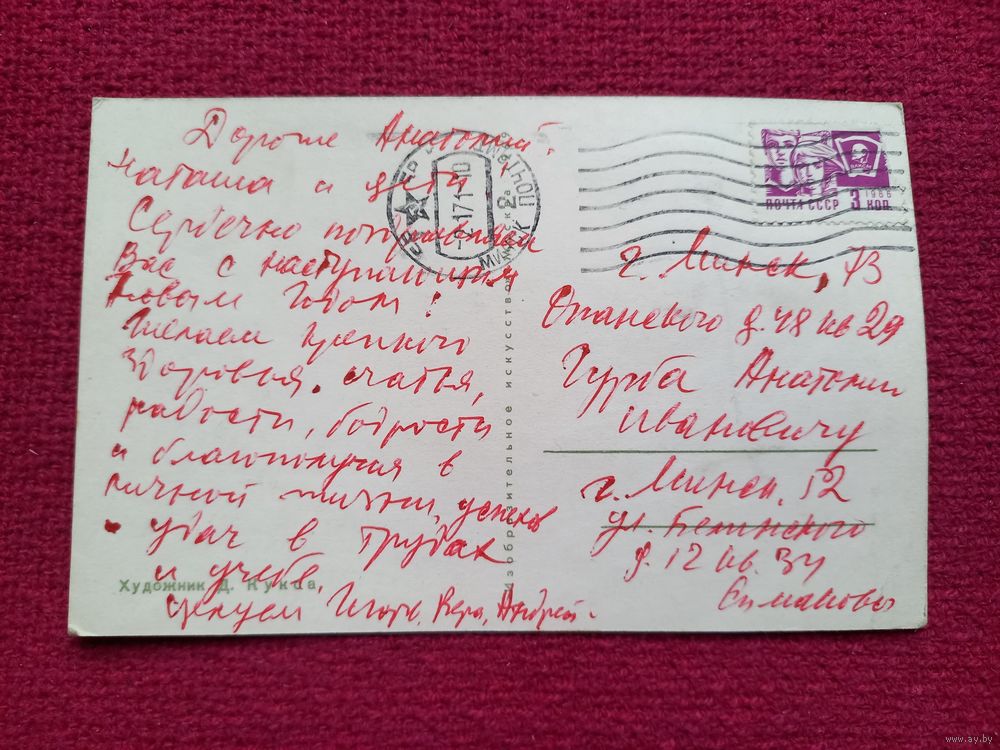 Дорогие Анатолий,
Наташа и дети
Сердечно поздравляем
Вас с наступающим
Новым Годом!
Желаем крепкого
Здоровья, счатья,
радости, бодрости
и благополучия в
личной жизни, успехов
и удач в трудах
и учебе,
целуем Игорь, Вера, Андрей.
Художник Д. Кукса
Изобразительное искусство
МИНСК
ПОЧТА СССР 3 КОП.
1966
ВЛКСМ
г. Минск, 73
Опанского д. 48 кв 29
Гурба Анатолию
Ивановичу
г. Минск, 52
ул. Белинского
д. 12 кв. 34
Симаковы
www.ay.by